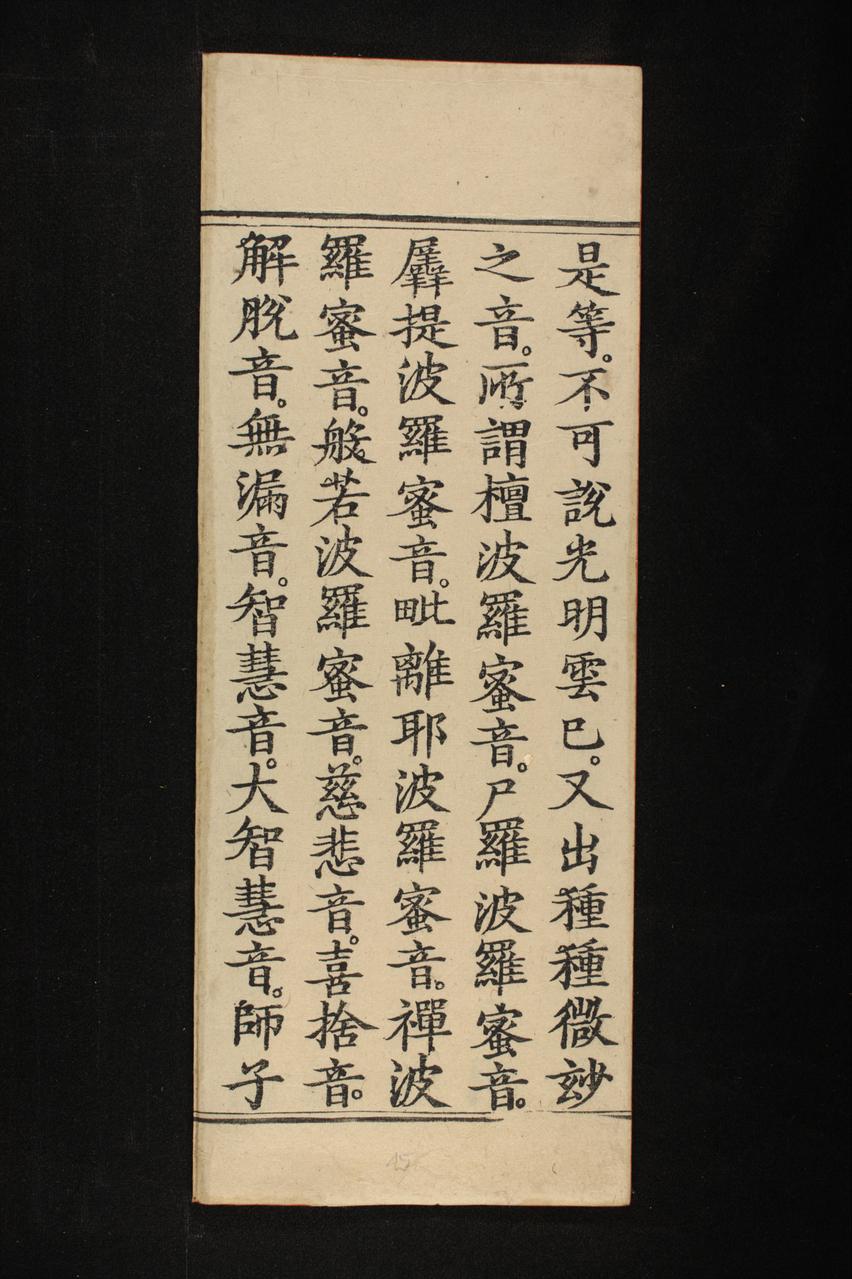 是等。不可說光明雲已。又出種種微玅
之音。所謂檀波羅蜜音。尸羅波羅蜜音。
羼提波羅蜜音。毗離耶波羅蜜音。禪波
羅蜜音。般若波羅蜜音。慈悲音。喜捨音。
解脫音。無漏音。智慧音。大智慧音。師子
15